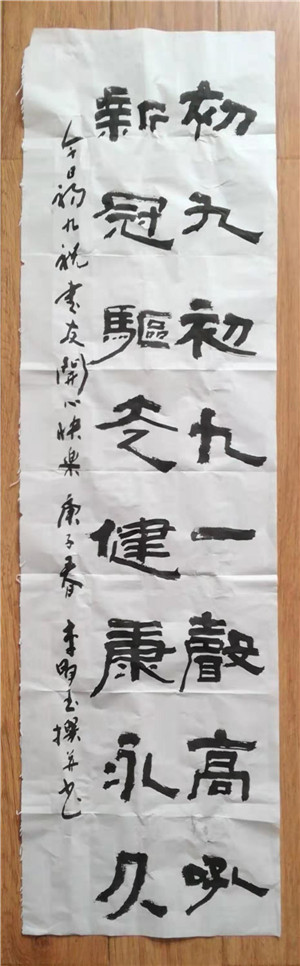 初九初九一聲高吼
新冠驅走健康永久
今日初九祝書友開心快樂 庚子春 李明玉撰并書